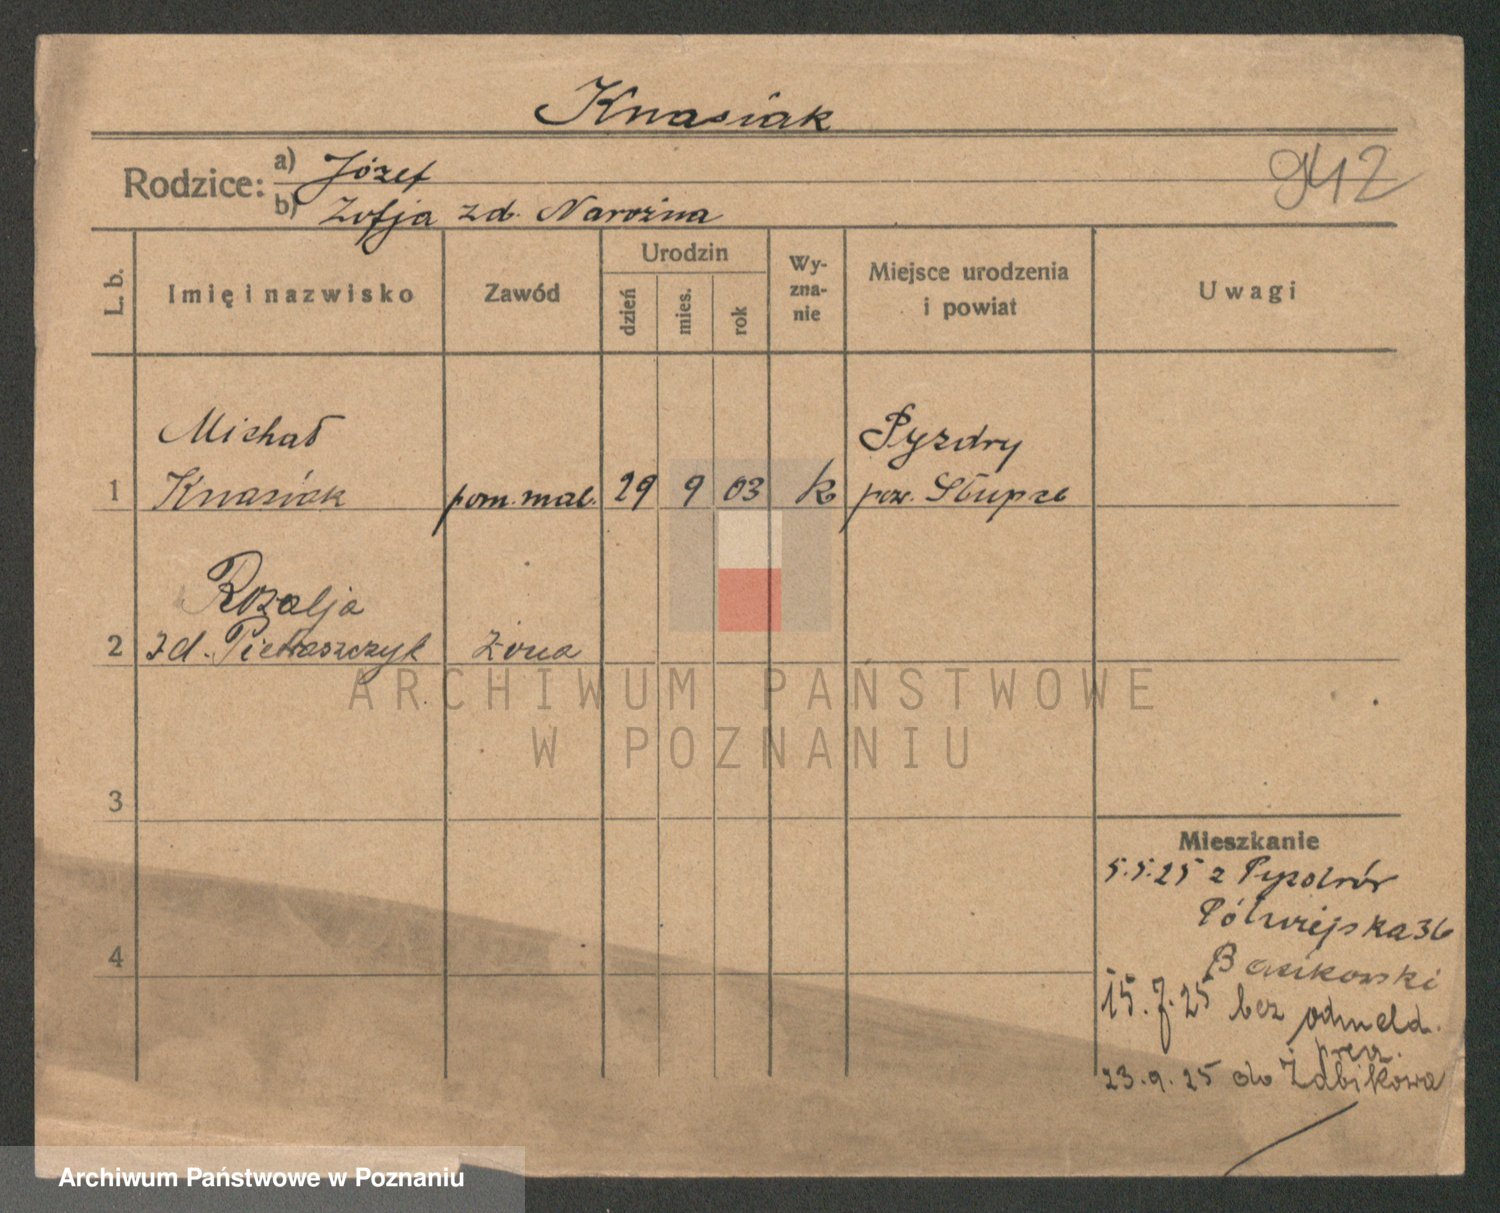 Knasiak
Rodzice: a) Józef
b) Zofja zd. Narożna
942
L. b.
Imię i nazwisko
Zawód
Urodzin
dzień
mies.
rok
Wy-
zna-
nie
Miejsce urodzenia
i powiat
Uwagi
Michał
Pyzdry
1 Knasiak pom. mal. 29 9 03 k pow. Słupze
Rozalja
2 zd. Pietraszczyk żona
ARCHIWUM PAŃSTWOWE
W POZNANIU
3
Mieszkanie
5.5.25 z Pyzdrów
Półwiejska 36
4
15.7.25 bez odmeld.
23.9.25 do Żabikowa
Archiwum Państwowe w Poznaniu